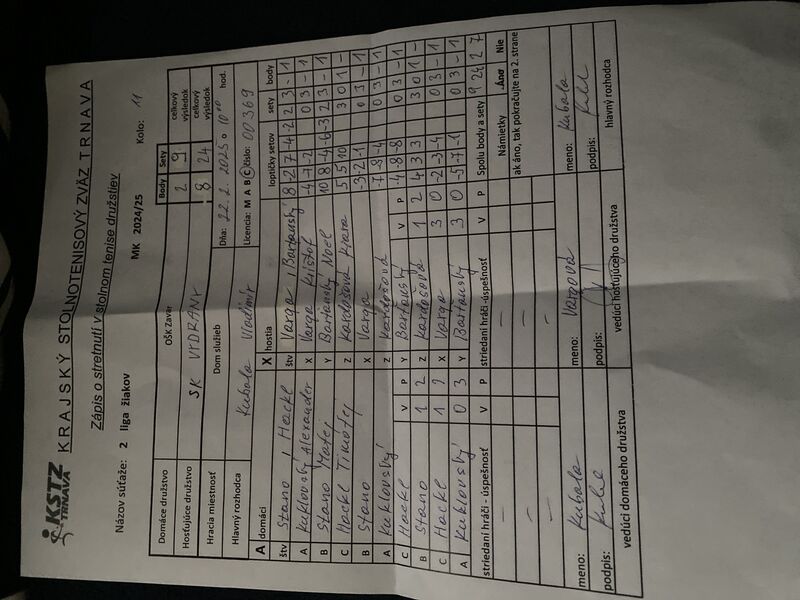 KSTZ
TRNAVA
KRAJSKÝ STOLNOTENISOVÝ ZVÄZ TRNAVA
Zápis o stretnutí v stolnom tenise družstiev
Názov súťaže: 2 liga žiakov MK 2024/25 Kolo: 11
Body Sety
Domáce družstvo OŠK Zavar 2 9 celkový výsledok
Hosťujúce družstvo SK VYDRANY 8 24 celkový výsledok
Hracia miestnosť Dom služieb Dňa: 22.2.2025 o 10 00 hod.
Hlavný rozhodca Kubala Vladimír Licencia: M A B C číslo: 00369
A domáci X hostia loptičky setov sety body
štv Stano, Hackl štv Varga, Bartanský 8 -2 7 -4 -2 2 3 - 1
A Kuklovský Alexander X Varga Kristof -4 -7 -2 0 3 - 1
B Stano Matej Y Bartanský Noel 10 8 -4 -6 -3 2 3 - 1
C Hackl Timotej Z Kardošová Kiara 5 5 10 3 0 1 -
B Stano X Varga -3 -2 -1 0 3 - 1
A Kuklovský Z Kardošová -7 -8 -4 0 3 - 1
C Hackl V P Y Bartanský V P -4 -8 -8 0 3 - 1
B Stano 1 2 Z Kardošová 1 2 4 3 3 3 0 1 -
C Hackl 1 2 X Varga 3 0 -2 -3 -4 0 3 - 1
A Kuklovský 0 3 Y Bartanský 3 0 -5 -7 -1 0 3 - 1
striedaní hráči - úspešnosť V P striedaní hráči -úspešnosť V P Spolu body a sety 9 24 2 7
Námietky Áno Nie
ak áno, tak pokračujte na 2. strane
meno: Kubala meno: Vargová meno: Kubala
podpis: podpis: podpis:
vedúci domáceho družstva vedúci hosťujúceho družstva hlavný rozhodca